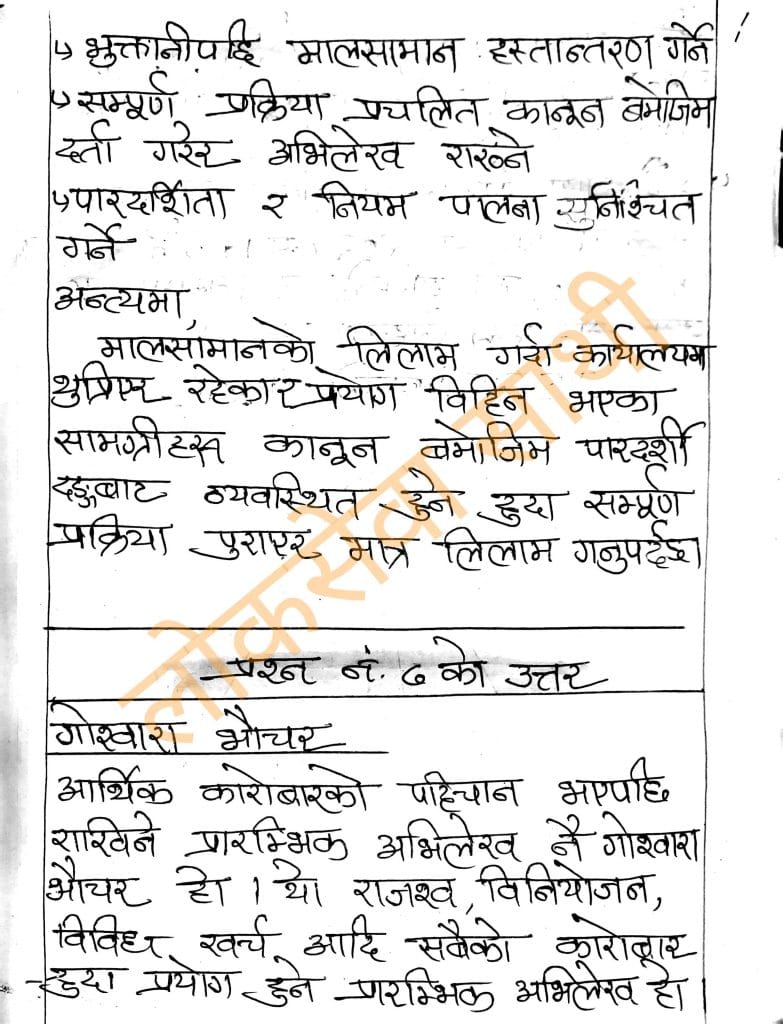 ↳ भुक्तानीपछि मालसामान हस्तान्तरण गर्ने
↳ सम्पूर्ण प्रक्रिया प्रचलित कानून बमोजिम
दर्ता गरेर अभिलेख राख्ने
↳ पारदर्शिता र नियम पालना सुनिश्चित
गर्ने
अन्त्यमा,
मालसामानको लिलाम गर्दा कार्यालयमा
थुप्रिएर रहेका र प्रयोग विहिन भएका
सामग्रीहरू कानून बमोजिम पारदर्शी
ढङ्गबाट व्यवस्थित हुने हुदा सम्पूर्ण
प्रक्रिया पुराएर मात्र लिलाम गनुपर्दछ।
प्रश्न नं. ७ को उत्तर
गोश्वारा भौचर
आर्थिक कारोबारको पहिचान भएपछि
राखिने प्रारम्भिक अभिलेख नै गोश्वारा
भौचर हो । यो राजश्व, विनियोजन,
विविध खर्च आदि सबैको कारोबार
हुदा प्रयोग हुने प्रारम्भिक अभिलेख हो।
लोकसेवा साथी